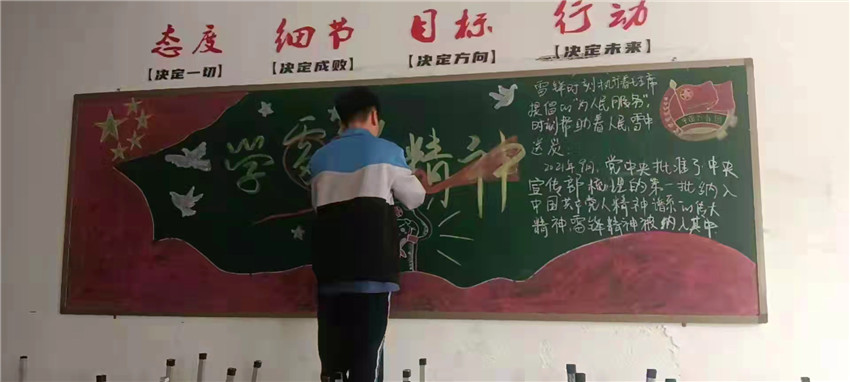 态度 细节 目标 行动
【决定一切】 【决定成败】 【决定方向】 【决定未来】
学雷 精神
雷锋时刻 席
提倡的“为人民服务”,
时刻帮助着人民,雪中
送炭.
2021年9月,党中央批准了中央
宣传部梳理的第一批纳入
中国共产党人精神谱系的伟大
精神,雷锋精神被纳入其中.